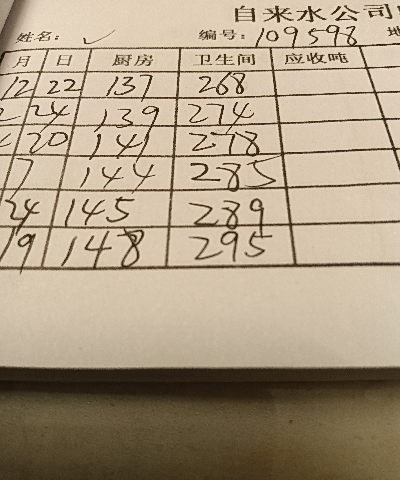 自来水公司
姓名： 编号：109598
月 日 厨房 卫生间 应收吨
12 22 137 268
2 24 139 274
20 141 278
7 144 285
24 145 289
19 148 295